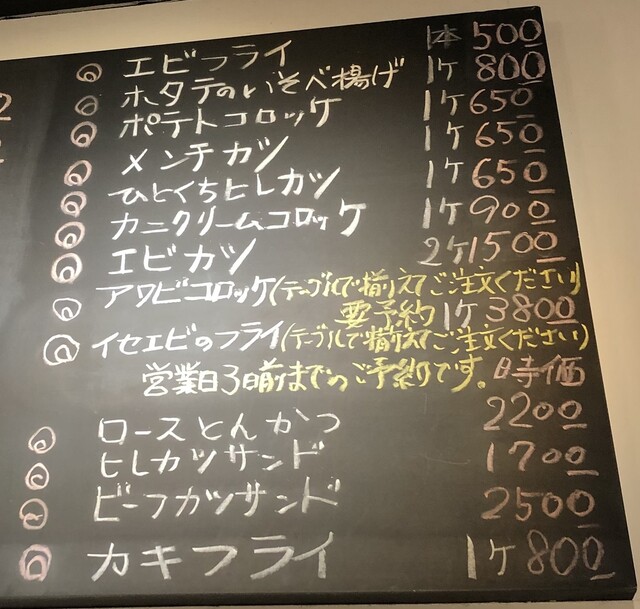 エビフライ 1本 500
ホタテのいそべ揚げ 1ケ 800
ポテトコロッケ 1ケ 650
メンチカツ 1ケ 650
ひとくちヒレカツ 1ケ 650
カニクリームコロッケ 1ケ 900
エビカツ 2ケ 1500
アワビコロッケ(テーブルで揃えてご注文ください)
要予約 1ケ 3800
イセエビのフライ(テーブルで揃えてご注文ください)
営業日3日前までのご予約です。 時価
ロースとんかつ 2200
ヒレカツサンド 1700
ビーフカツサンド 2500
カキフライ 1ケ 800